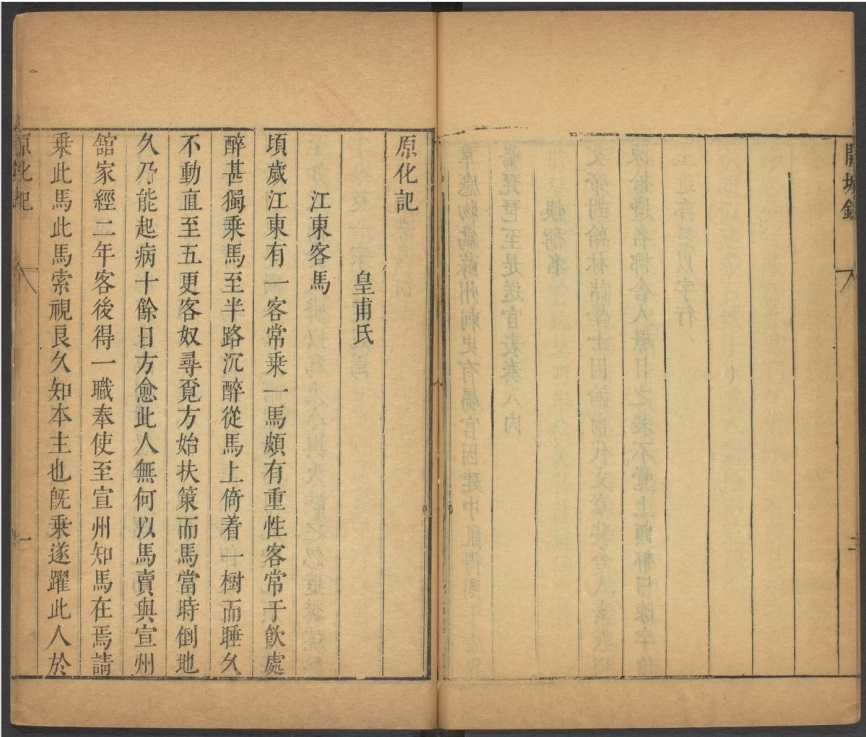 開城錄
二
原化記
皇甫氏
江東客馬
頃歲江東有一客常乘一馬頗有重性客常于飲處
醉甚獨乘馬至半路沉醉從馬上倚着一樹而睡久
不動直至五更客奴尋覔方始扶策而馬當時倒地
久乃能起病十餘日方愈此人無何以馬賣與宣州
舘家經二年客後得一職奉使至宣州知馬在焉請
乘此馬此馬索視良久知本主也旣乘遂躍此人於
原化記
一